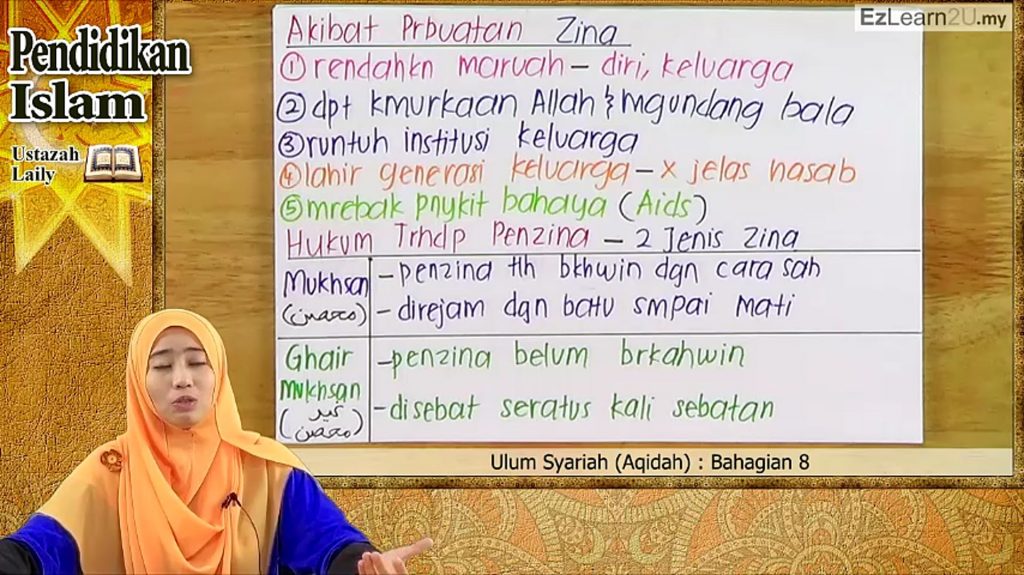 EzLearn2U.my
Pendidikan
Islam
Ustazah
Laily
Akibat Prbuatan Zina
① rendahkn maruah – diri, keluarga
② dpt kmurkaan Allah & mgundang bala
③ runtuh institusi keluarga
④ lahir generasi keluarga – x jelas nasab
⑤ mrebak pnykit bahaya (Aids)
Hukum Trhdp Penzina – 2 Jenis Zina
Mukhsan
(محصن)
– penzina tlh bkhwin dgn cara sah
– direjam dgn batu smpai mati
Ghair
Mukhsan
(غير
محصن)
– penzina belum brkahwin
– disebat seratus kali sebatan
Ulum Syariah (Aqidah) : Bahagian 8